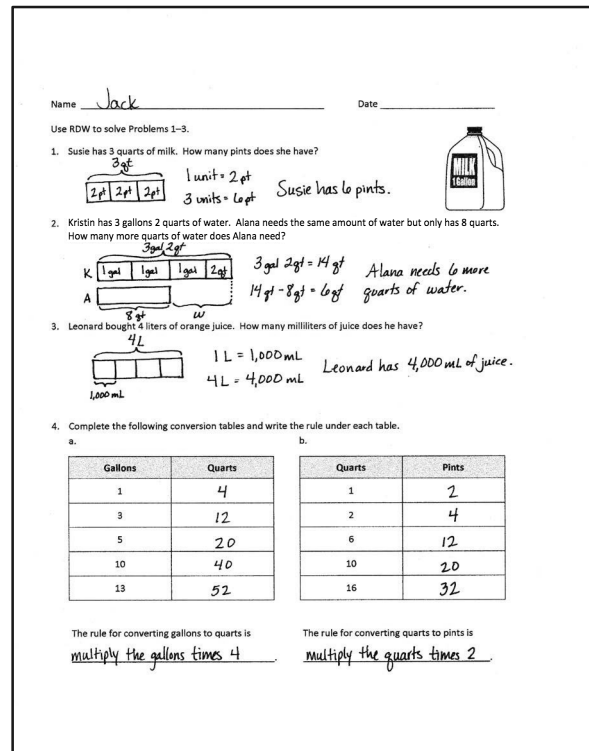 Name Jack Date
Use RDW to solve Problems 1–3.
1. Susie has 3 quarts of milk. How many pints does she have?
3qt
2pt 2pt 2pt
1 unit = 2 pt
3 units = 6 pt
Susie has 6 pints.
MILK
1 Gallon
2. Kristin has 3 gallons 2 quarts of water. Alana needs the same amount of water but only has 8 quarts.
How many more quarts of water does Alana need?
3gal 2qt
K 1gal 1gal 1gal 2qt
A
8 qt w
3 gal 2qt = 14 qt
14 qt - 8 qt = 6 qt
Alana needs 6 more
quarts of water.
3. Leonard bought 4 liters of orange juice. How many milliliters of juice does he have?
4L
1,000 mL
1 L = 1,000 mL
4L = 4,000 mL
Leonard has 4,000 mL of juice.
4. Complete the following conversion tables and write the rule under each table.
a.
Gallons Quarts
1 4
3 12
5 20
10 40
13 52
The rule for converting gallons to quarts is
multiply the gallons times 4.
b.
Quarts Pints
1 2
2 4
6 12
10 20
16 32
The rule for converting quarts to pints is
multiply the quarts times 2.